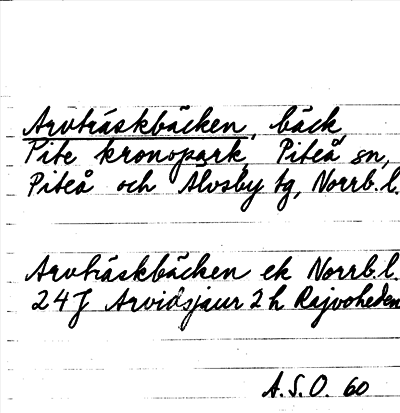 Arvträskbäcken, bäck,
Pite kronopark, Piteå sn,
Piteå och Älvsby tg, Norrb. l.
Arvträskbäcken ek Norrb. l.
24J Arvidsjaur 2 h Rajvoheden
A.S.O. 60